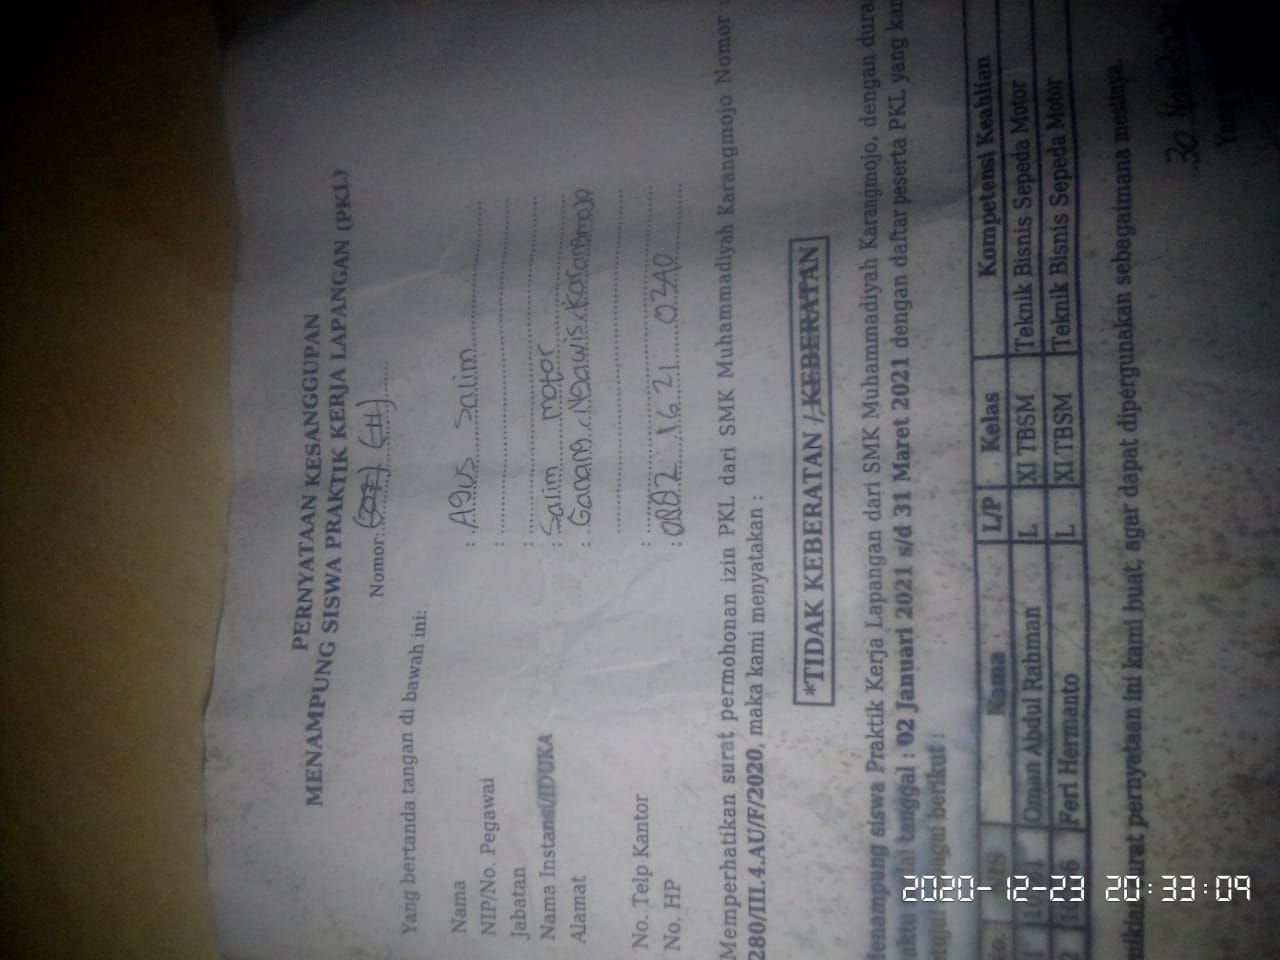 PERNYATAAN KESANGGUPAN
MENAMPUNG SISWA PRAKTIK KERJA LAPANGAN (PKL)
Nomor:
Yang bertanda tangan di bawah ini:
Nama : Agus Salim
NIP/No. Pegawai :
Jabatan :
Nama Instansi/IDUKA : Salim motor
Alamat : Ganang, Ngawis, Karangmojo
No. Telp Kantor :
No. HP :
Memperhatikan surat permohonan izin PKL dari SMK Muhammadiyah Karangmojo Nomor
280/III.4.AU/F/2020, maka kami menyatakan :
*TIDAK KEBERATAN / KEBERATAN
Menampung siswa Praktik Kerja Lapangan dari SMK Muhammadiyah Karangmojo, dengan
tanggal : 02 Januari 2021 s/d 31 Maret 2021 dengan daftar peserta PKL yang
berikut :
Nama L/P Kelas Kompetensi Keahlian
Oman Abdul Rahman L XI TBSM Teknik Bisnis Sepeda Motor
2 Feri Hermanto L XI TBSM Teknik Bisnis Sepeda Motor
surat pernyataan ini kami buat, agar dapat dipergunakan sebagaimana mestinya.
30
2020-12-23 20:33:09